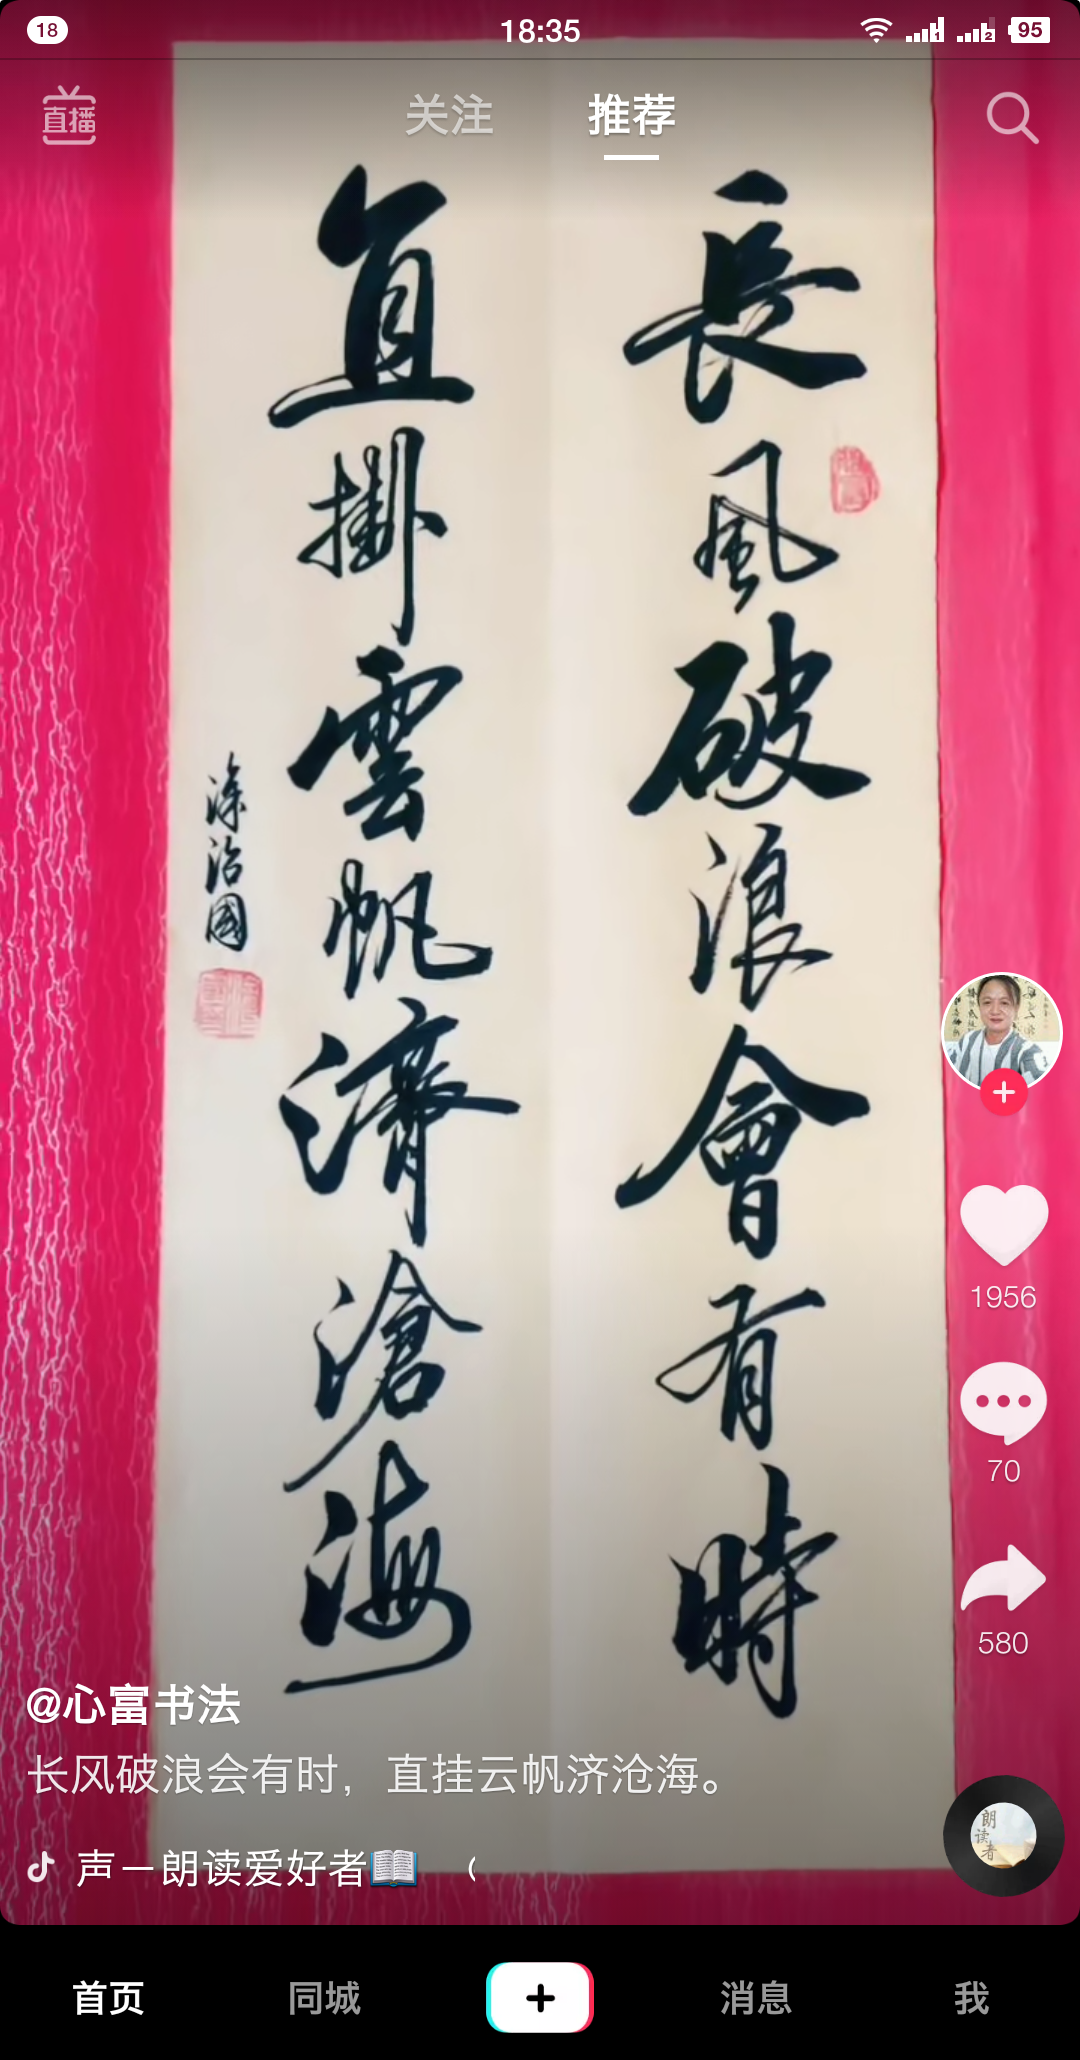 18
18:35
1
2
95
直播
关注
推荐
長風破浪會有時
直掛雲帆濟滄海
涂治國
1956
70
580
@心富书法
长风破浪会有时，直挂云帆济沧海。
声一朗读爱好者📖
朗读者
首页
同城
消息
我